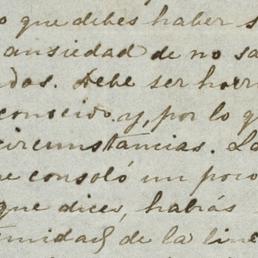 o que debes haber s
ansiedad de no sa
dos. Debe ser horr
conocido y, por lo q
circumstancias. La
e consoló un poco
que dices, habrás
unidad de la line